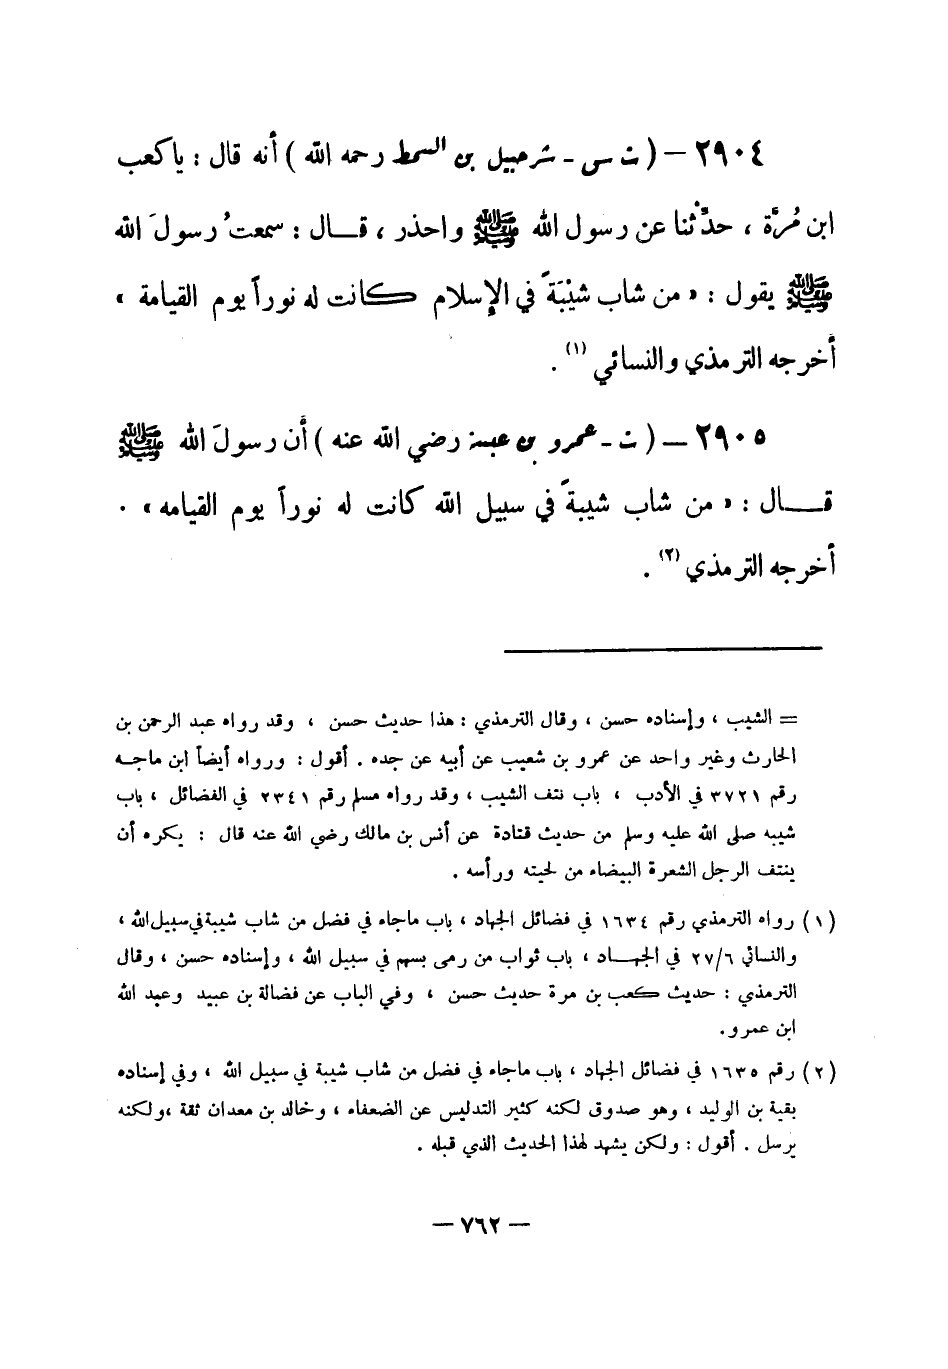 ٢٩٠٤ – ( ت س - شرحبيل بن السمط رحمه الله ) أنه قال : ياكعب
ابن مُرَّة ، حدِّثْنا عن رسول الله ﷺ واحذر ، قـــال : سمعتُ رسولَ الله
ﷺ يقول : « من شاب شيْبَةً في الإسلام كانت له نوراً يوم القيامة »
أخرجه الترمذي والنسائي (١) .
٢٩٠٥ – ( ت - عمرو بن عبسة رضي الله عنه ) أن رسولَ الله ﷺ
قـــال : « من شاب شيبةً في سبيل الله كانت له نوراً يوم القيامه » .
أخرجه الترمذي (٢) .
= الشيب ، وإسناده حسن ، وقال الترمذي : هذا حديث حسن ، وقد رواه عبد الرحمن بن
الحارث وغير واحد عن عمرو بن شعيب عن أبيه عن جده . أقول : ورواه أيضاً ابن ماجـه
رقم ٣٧٢١ في الأدب ، باب نتف الشيب ، وقد رواه مسلم رقم ٢٣٤١ في الفضائل ، باب
شيبه صلى الله عليه وسلم من حديث قتادة عن أنس بن مالك رضي الله عنه قال : يكره أن
ينتف الرجل الشعرة البيضاء من لحيته ورأسه .
(١) رواه الترمذي رقم ١٦٣٤ في فضائل الجهاد ، باب ماجاء في فضل من شاب شيبة في سبيل الله ،
والنسائي ٢٧/٦ في الجهـــاد ، باب ثواب من رمى بسهم في سبيل الله ، وإسناده حسن ، وقال
الترمذي : حديث كعب بن مرة حديث حسن ، وفي الباب عن فضالة بن عبيد وعبد الله
ابن عمرو.
(٢) رقم ١٦٣٥ في فضائل الجهاد ، باب ماجاء في فضل من شاب شيبة في سبيل الله ، وفي إسناده
بقية بن الوليد ، وهو صدوق لكنه كثير التدليس عن الضعفاء ، وخالد بن معدان ثقة ،ولكنه
يرسل . أقول : ولكن يشهد لهذا الحديث الذي قبله .
– ٧٦٢ –